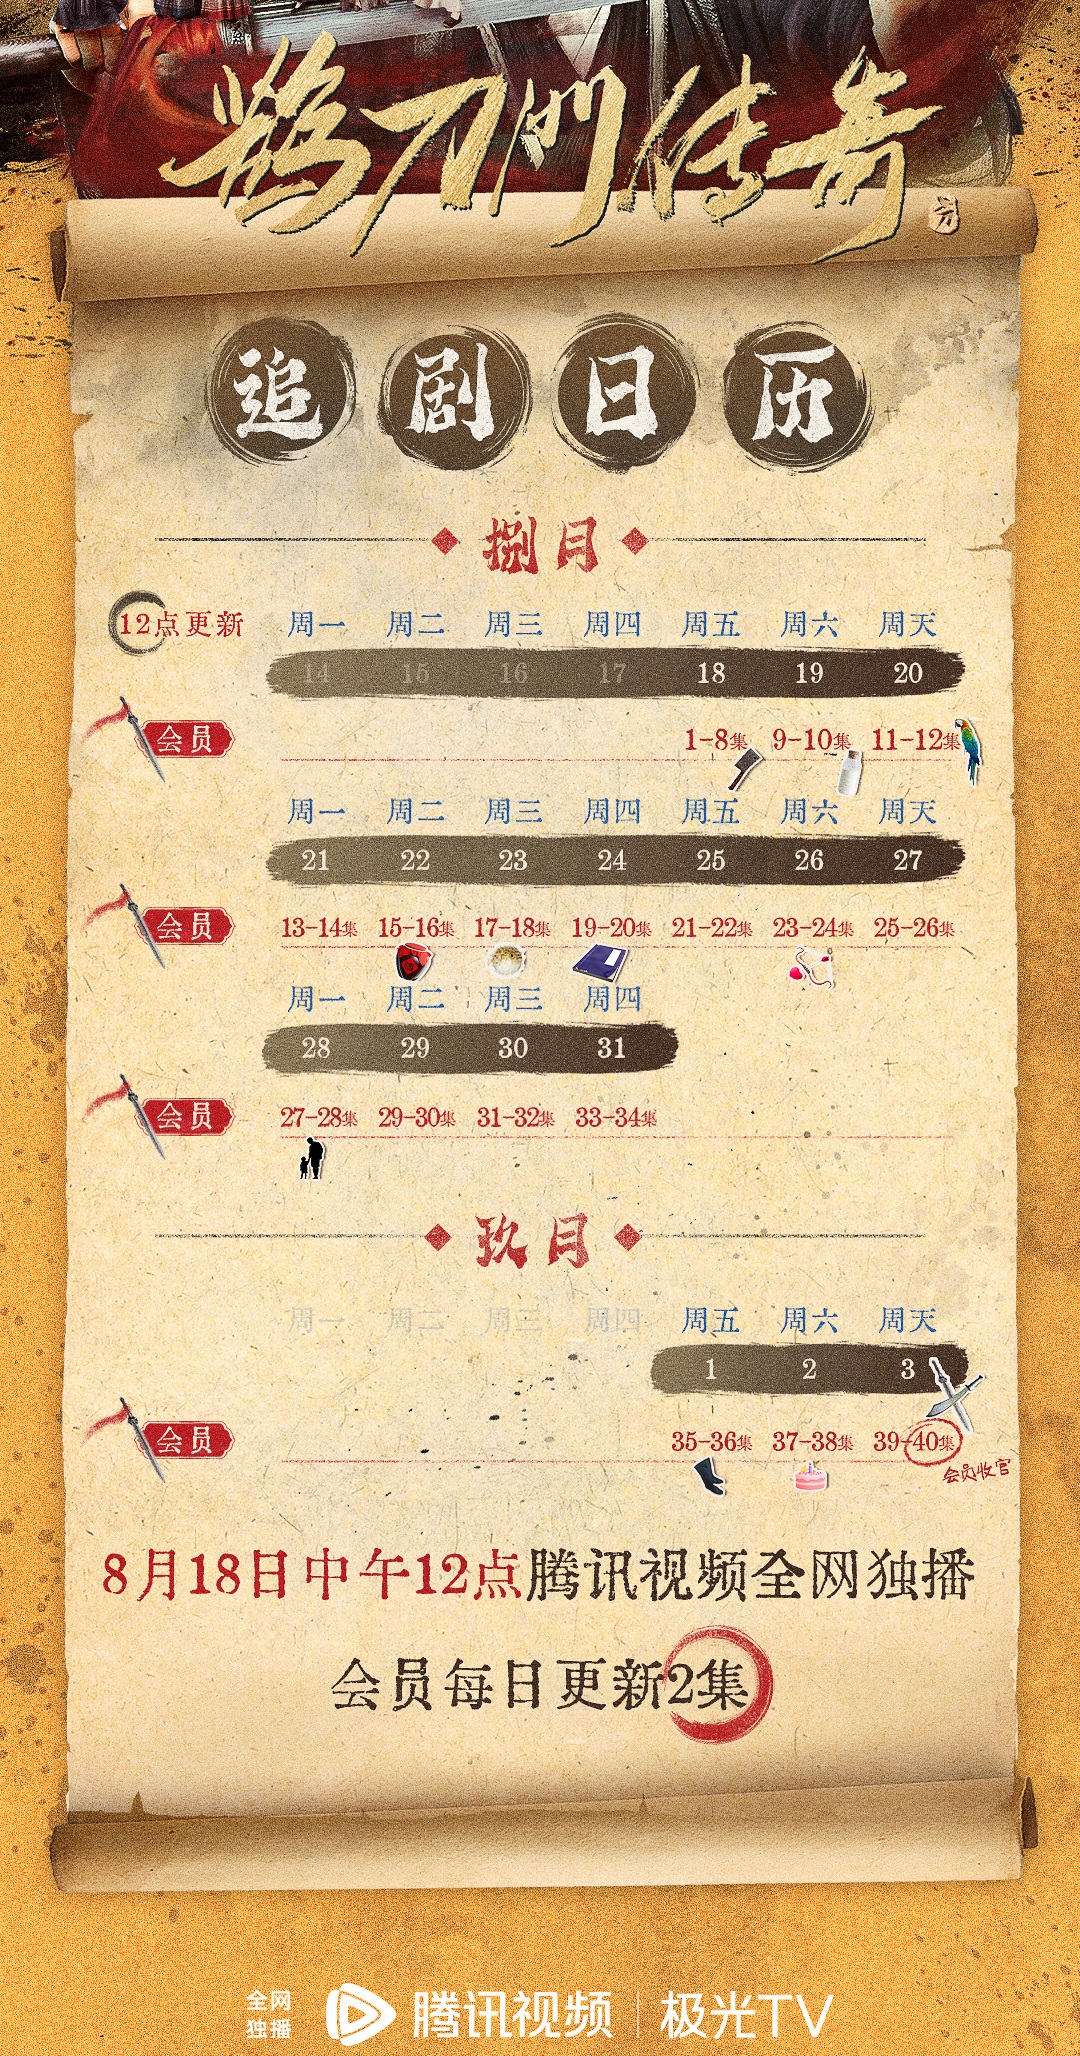 鹊刀门传奇
追剧日历
捌月
12点更新 周一 周二 周三 周四 周五 周六 周天
14 15 16 17 18 19 20
会员 1-8集 9-10集 11-12集
周一 周二 周三 周四 周五 周六 周天
21 22 23 24 25 26 27
会员 13-14集 15-16集 17-18集 19-20集 21-22集 23-24集 25-26集
周一 周二 周三 周四
28 29 30 31
会员 27-28集 29-30集 31-32集 33-34集
玖月
周一 周二 周三 周四 周五 周六 周天
1 2 3
会员 35-36集 37-38集 39-40集
会员收官
8月18日中午12点腾讯视频全网独播
会员每日更新2集
全网独播 腾讯视频 极光TV